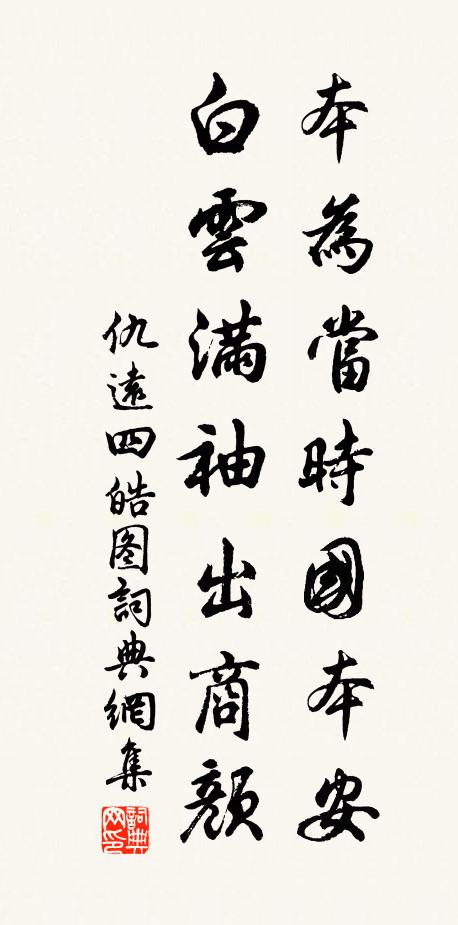 本為當時國本安
白雲滿袖出商顏
仇遠四皓图詞典網集
詞典网印